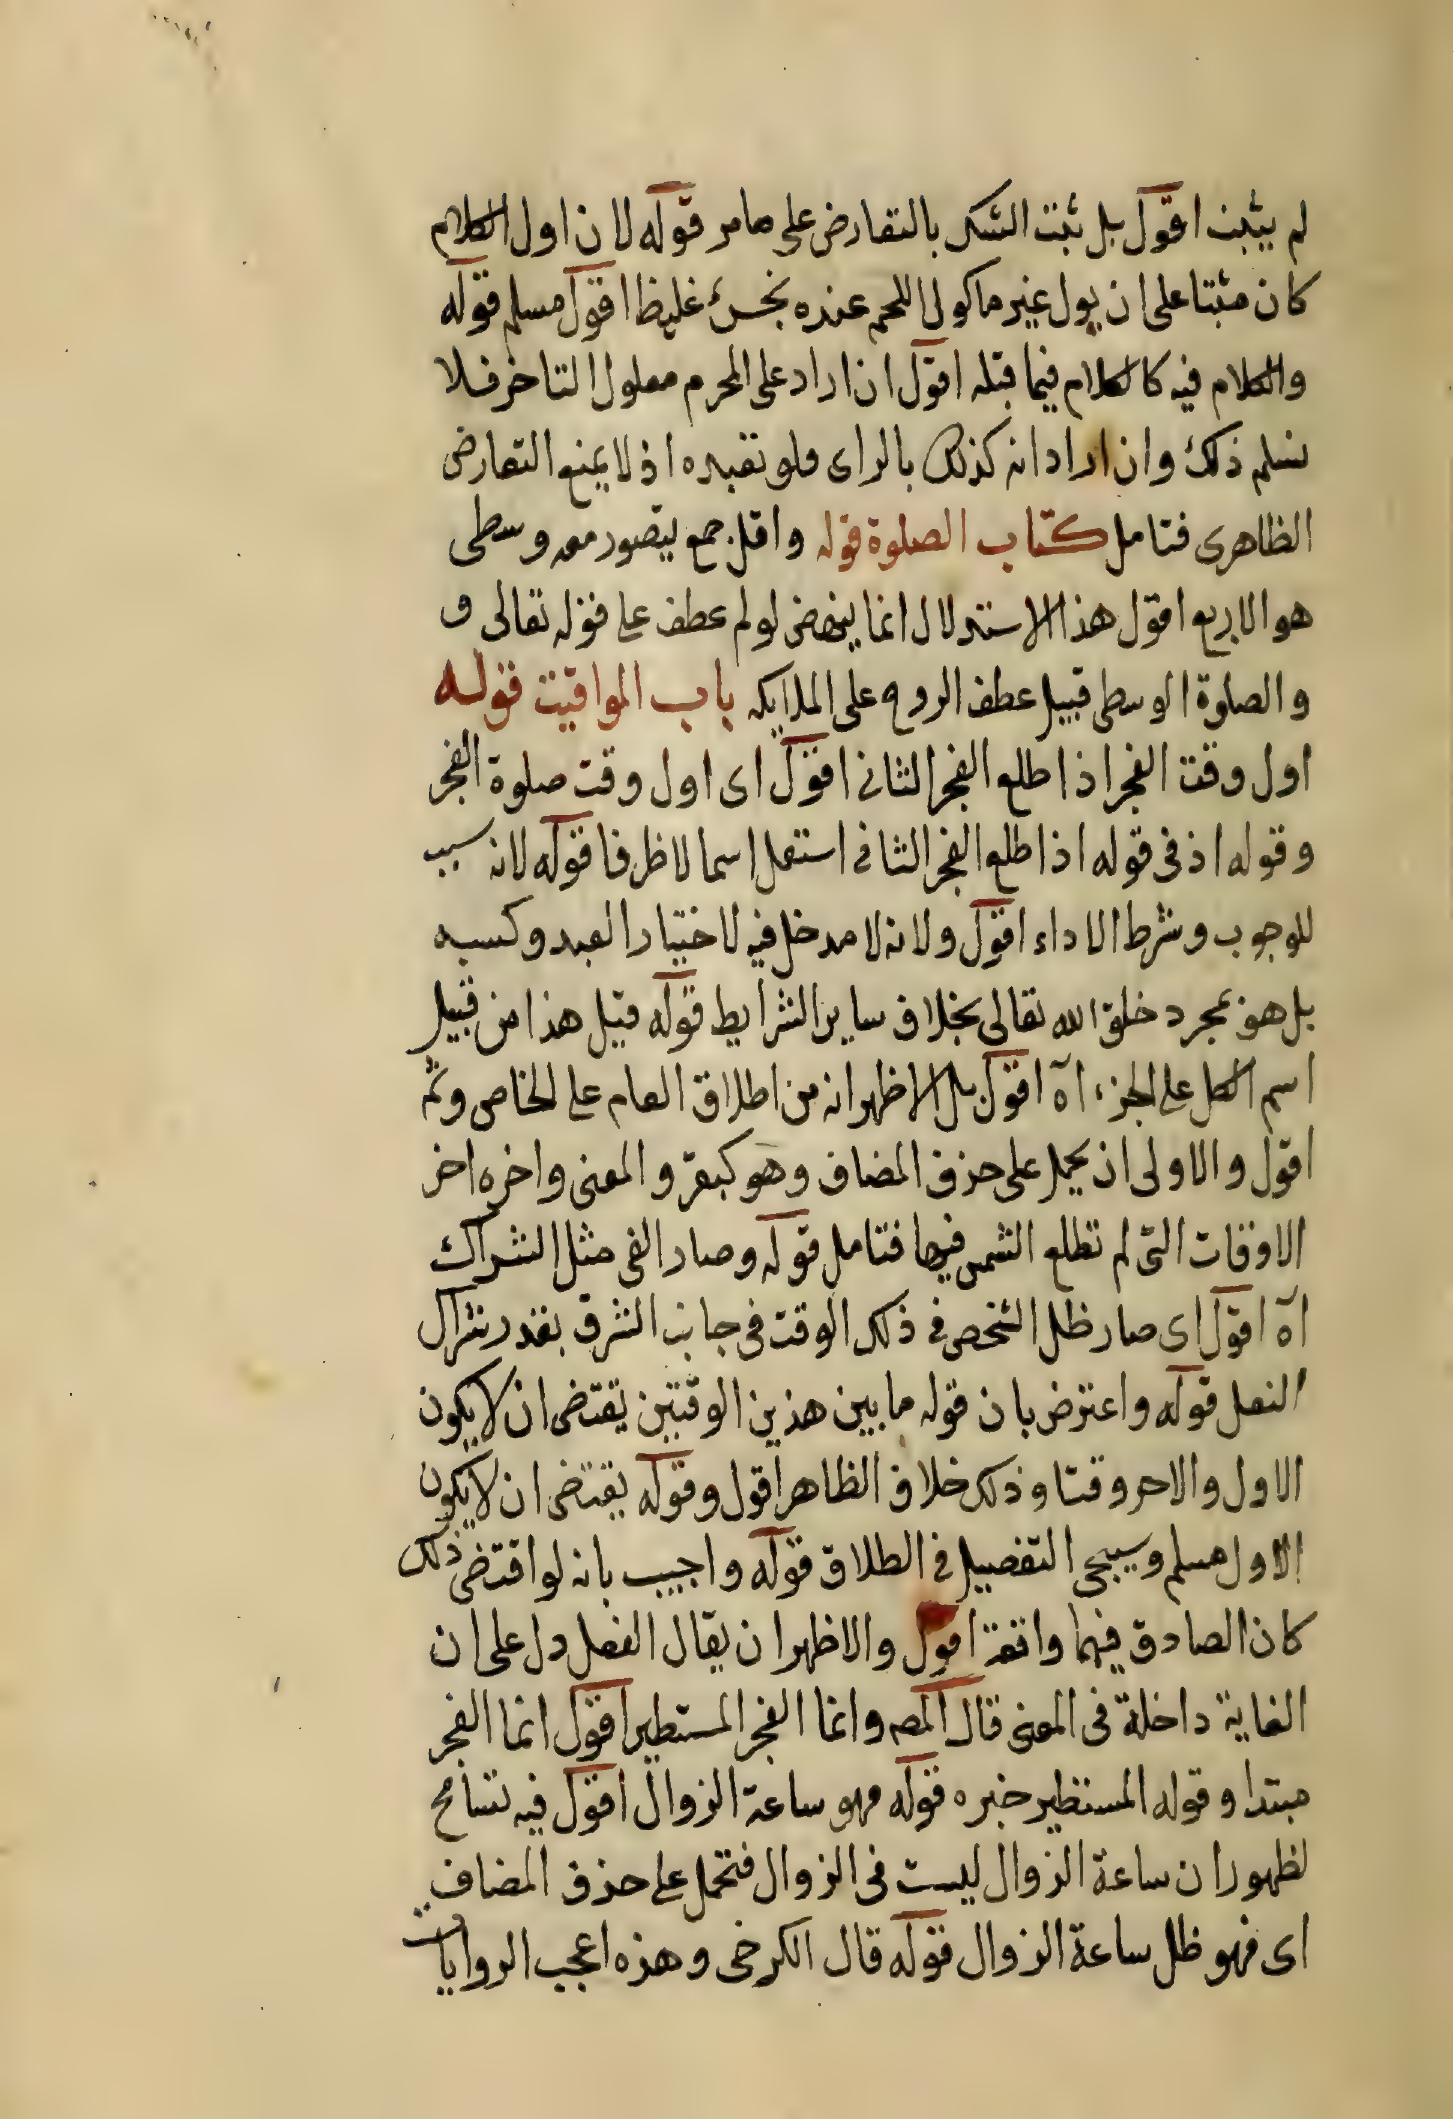 لم يثبت اقول بل ثبت الشك بالتعارض على مامر قوله لان اول الكلام
كان مثبتا على ان بول غير ماكول اللحم عنده نجس غليظ اقول مسلم قوله
والكلام فيه كالكلام فيما قبله اقول ان اراد على المحرم معلول التاخر فلا
نسلم ذلك وان اراد انه كذلك بالراى فلو نفيده اذ لا يمنع التعارض
الظاهرى فتامل كتاب الصلوة قوله واقل جمع يتصور معه وسطى
هو الاربع اقول هذا الاستدلال انما ينهض لو لم عطف على قوله تعالى و
والصلوة الوسطى قبيل عطف الروح على الملايكه باب المواقيت قوله
اول وقت الفجر اذا طلع الفجر الثانى اقول اى اول وقت صلوة الفجر
وقوله اذ فى قوله اذا طلع الفجر الثانى استعمل اسما لا ظرفا قوله لانه سبب
للوجوب وشرط الاداء اقول ولانه لا مدخل فيه لاختيار العبد وكسبه
بل هو بمجرد خلق الله تعالى بخلاف ساير الشرايط قوله قيل هذا من قبيل
اسم الكل على الجزء اه اقول بل الاظهر انه من اطلاق العام على الخاص وثم
اقول والاولى ان يحمل على حذف المضاف وهو كبقر والمعنى واخره اخر
الاوقات التى لم تطلع الشمس فيها فتامل قوله وصار الفى مثل الشراك
اه اقول اى صار ظل الشخص فى ذلك الوقت فى جانب الشرق بقدر شراك
النعل قوله واعترض بان قوله ما بين هذين الوقتين يقتضى ان لا يكون
الاول والاخر وقتا وذلك خلاف الظاهر اقول وقوله يقتضى ان لا يكون
الاول مسلم وسيجى التفصيل فى الطلاق قوله واجيب بانه لو اقتضى ذلك
كان الصادق فيهما واقعة اقول والاظهر ان يقال الفعل دل على ان
الغاية داخلة فى المعنى قال المص وانما الفجر المستطير اقول انما الفجر
مبتدا وقوله المستطير خبره قوله فهو ساعة الزوال اقول فيه تسامح
لظهور ان ساعة الزوال ليست فى الزوال فتحمل على حذف المضاف
اى فهو ظل ساعة الزوال قوله قال الكرخى وهذه اعجب الروايات